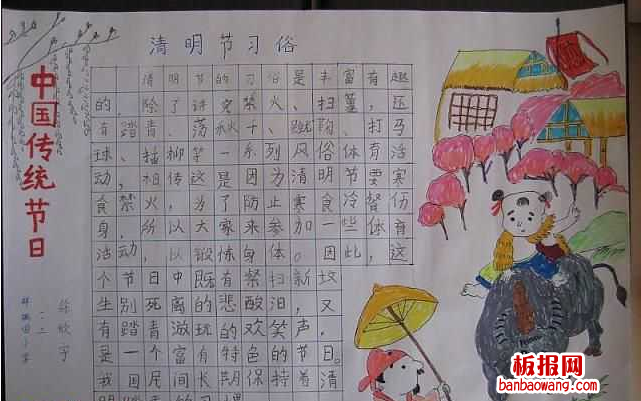 清明节习俗
中国传统节日
清明节的习俗是丰富有趣
的,除了讲究禁火、扫墓,还
有踏青、荡秋千、蹴鞠、打马
球、插柳等一系列风俗体育活
动,相传这是因为清明节要寒
食禁火,为了防止寒食冷餐伤
身,所以大家来参加一些体育
活动,以锻炼身体。因此,这
个节日中既有祭扫新坟
生别死离的悲酸泪,又
有踏青游玩的欢笑声,
是一个富有特色的节日。
我国民间长期保持着清
明踏青的习惯
板报网
banbaowang.com